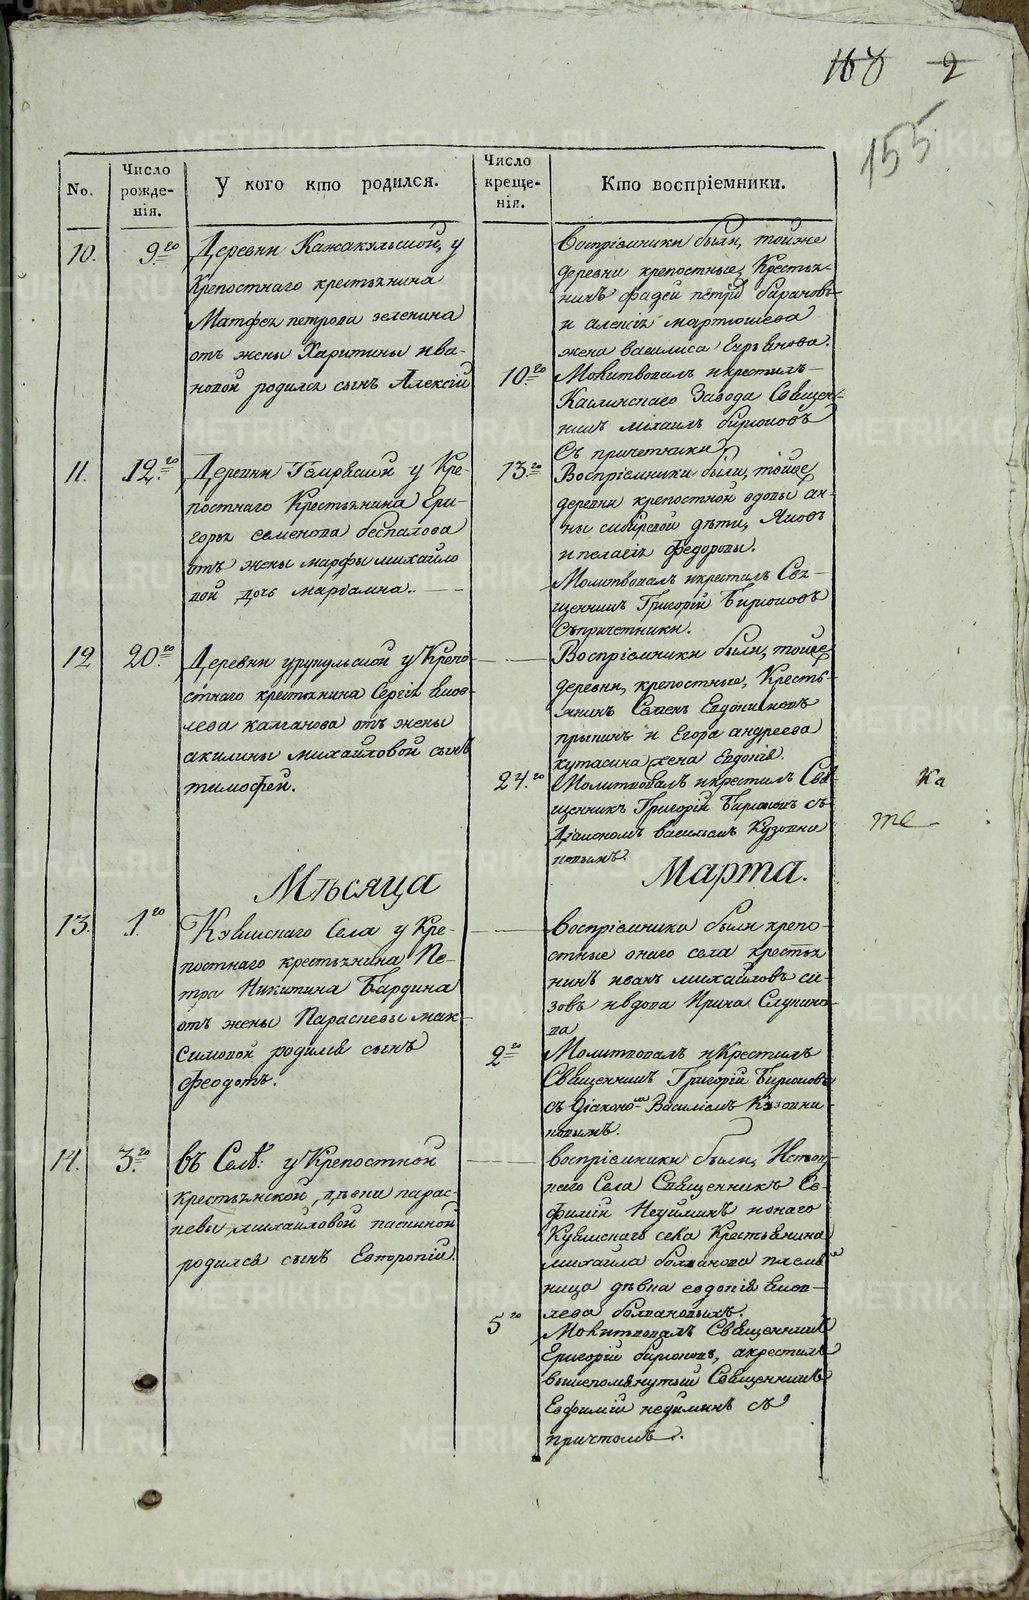 168 2
155
No.
Число рожде-нія.
У кого кто родился.
Число креще-нія.
Кто воспріемники.
10.
9го
Деревни Кажакульской, у
Крепостнаго крестьянина
Матфея петрова зеленина
отъ жены Харитины ива-
новой родился сынъ Алексій
Воспріемники были, тойже
деревни крепостные, Крестья-
нинъ фадей петровъ барановъ
и алексія мартюшева
жена василиса
10го
Молитвовалъ и крестилъ
Каслинскаго Завода Священ-
никъ михаилъ бирюковъ
Съ причетники
11.
12го
Деревни у Кре-
постнаго Крестьянина Гри-
горья семенова беспалова
отъ жены марфы михайло
вой дочь
13го
Воспріемники были, тойже
деревни крепостной вдовы ан-
ны сибирской дѣти, Яковъ
и пелагія федоровы.
Молитвовалъ и крестилъ Свя-
щенникъ Григорій Бирюковъ
Съ причетники.
12
20го
Деревни у Крепо-
стнаго крестьянина Сергія Яков-
лева калганова отъ жены
акилины михайловой сынъ
тимофей.
Воспріемники были, тойже
деревни, крепостные, Кресть-
янинъ Семенъ Евдокимовъ
и Егора андреева
кутасина жена Евдокія.
24го
Молитвовалъ и крестилъ Свя-
щенникъ Григорій Бирюковъ съ
Діакономъ васильемъ Кузовни
ковымъ.
Ка
те
Мѣсяца
Марта.
13.
1го
Куяшскаго Села у Кре-
постнаго крестьянина Пе-
тра Никитина Бардина
отъ жены Парасковьи мак-
симовой родился сынъ
Феодотъ.
воспріемники были крепо-
стные онаго села крестья
нинъ иванъ михайловъ си-
зовъ и вдова Ирина Слупино-
ва
2го
Молитвовалъ и Крестилъ
Священникъ Григорій Бирюковъ
съ діакономъ Василіемъ Кузовни
ковымъ.
14.
3го
въ Селѣ: у Крепостной
крестьянской дѣвки парас-
ковьи михайловой паскиной
родился сынъ Евтропій.
воспріемники были,
Села Священникъ Ев-
фимій Неуйминъ и онаго
Куяшскаго села Крестьянина
михаила болванова племян
ница дѣвка евдокія Яков-
лева болвановыхъ.
5го
Молитвовалъ Священникъ
Григорій бирюковъ, а крестилъ
вышепомянутый Священникъ
Евфимій неуйминъ съ
причтомъ.
METRIKI.GASO-URAL.RU